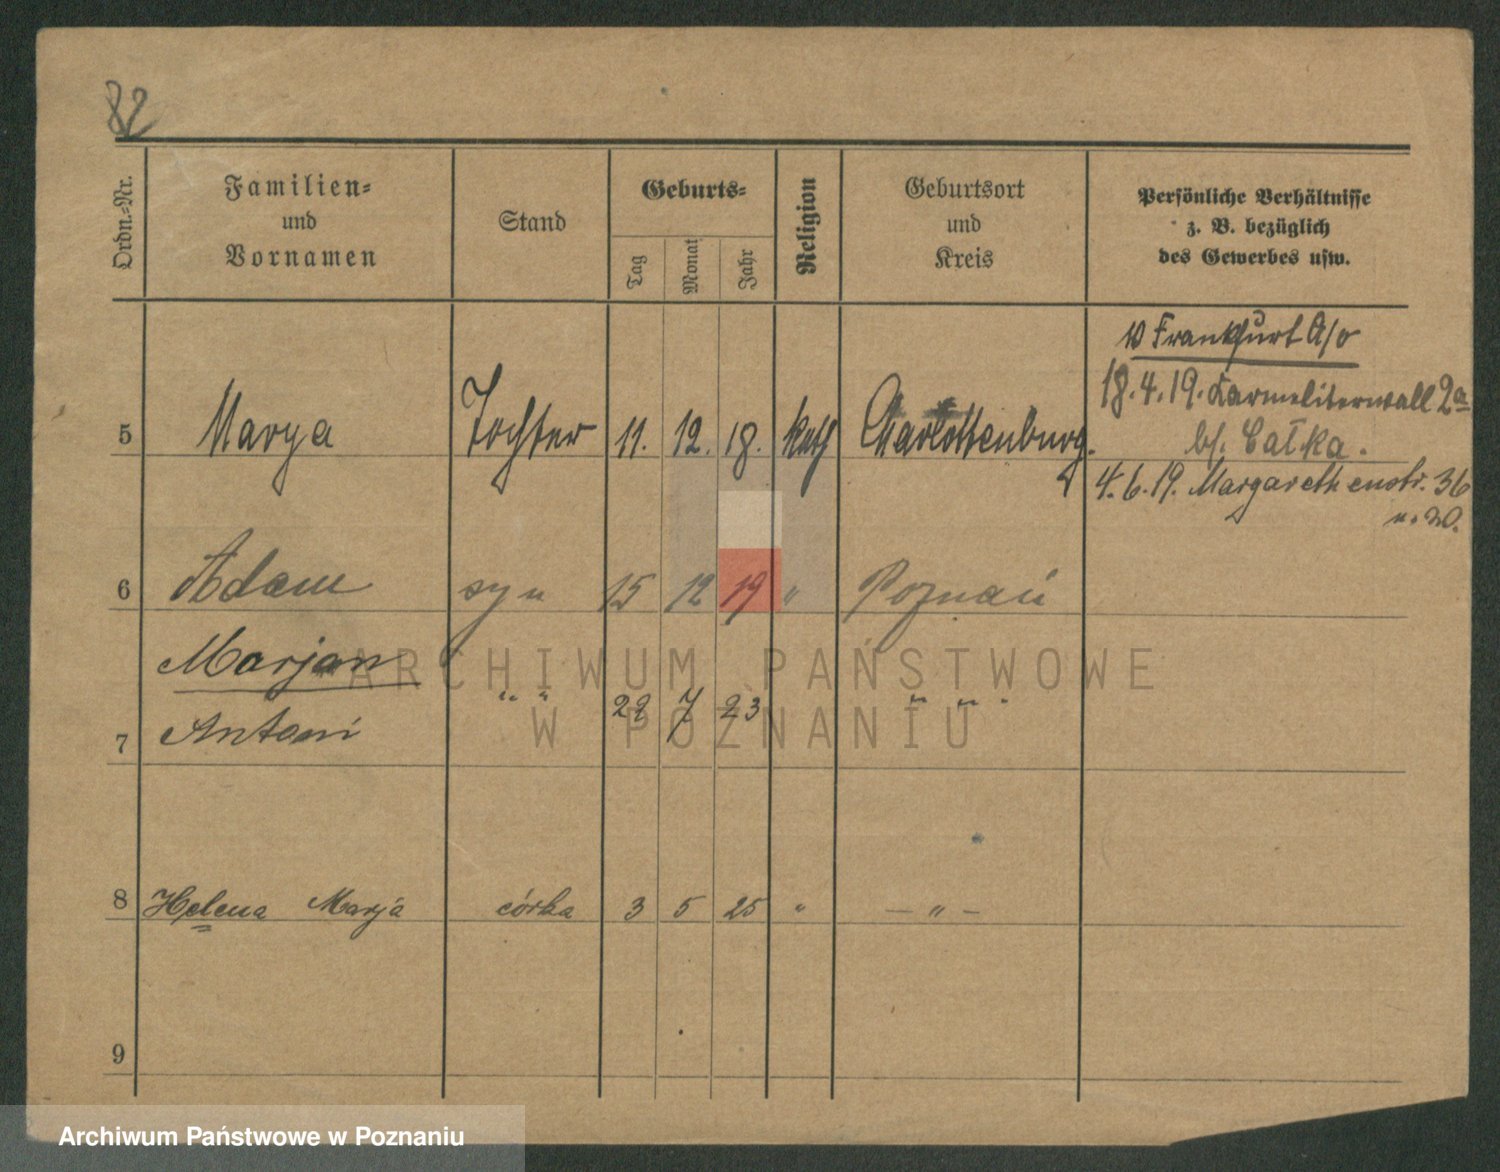 82
Ordn.=Nr.
Familien=
und
Vornamen
Stand
Geburts=
Tag
Monat
Jahr
Religion
Geburtsort
und
Kreis
Persönliche Verhältnisse
z. B. bezüglich
des Gewerbes usw.
Frankfurt A/o
18. 4. 19. Karmeliterwall 2a
5 Marya Tochter 11. 12. 18. kath Charlottenburg.
bf. Całka.
4. 6. 19. Margarethenstr. 36
6 Adam syn 15 12 19 " Poznań
Marjan
" " 22 7 23 " " .
7 Antoni
8 Helena Marja córka 3 5 25 " — " —
9
ARCHIWUM PAŃSTWOWE
W POZNANIU
Archiwum Państwowe w Poznaniu